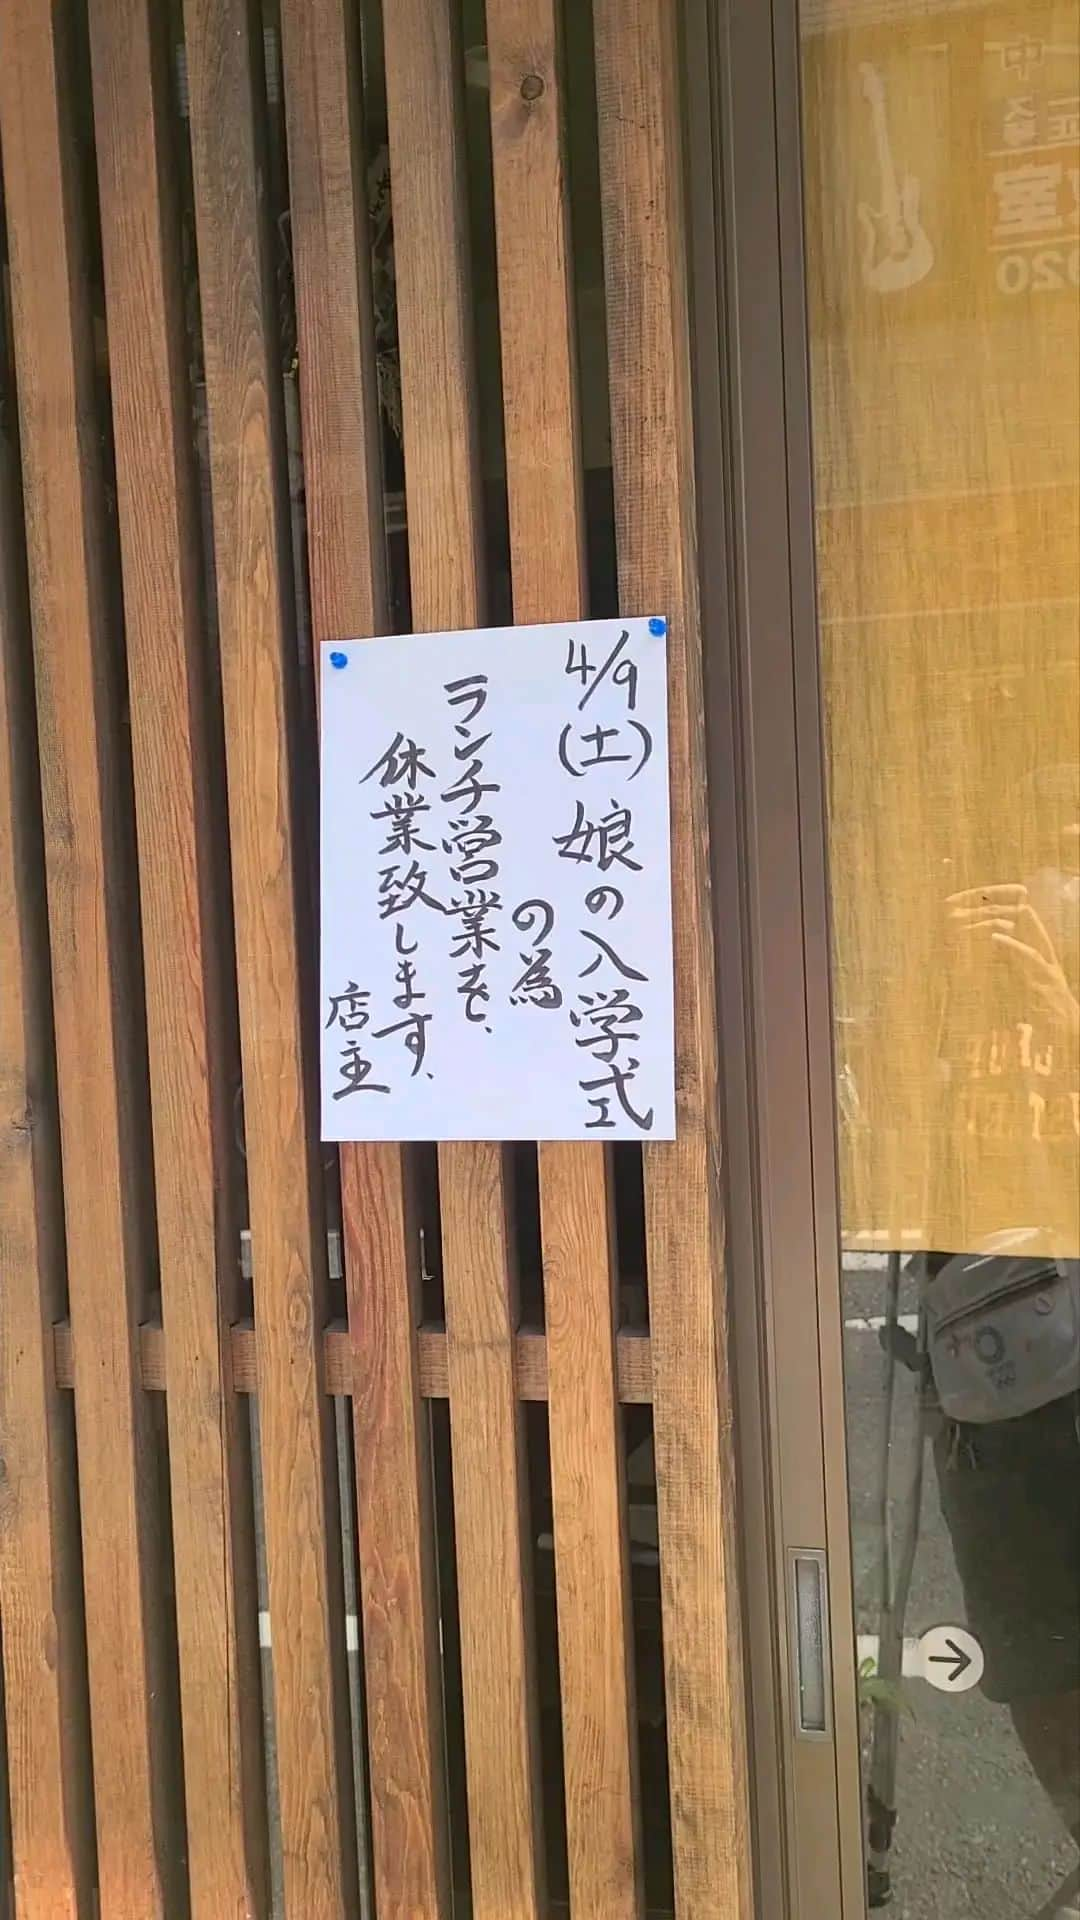 4/9(土)娘の入学式
の為
ランチ営業を、
休業致します、
店主
室
020